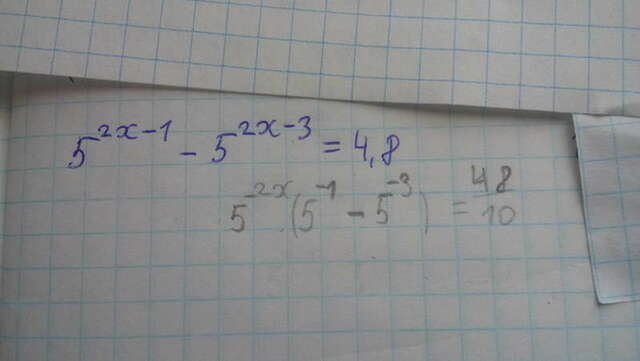 5^{2x-1} - 5^{2x-3} = 4,8
5^{2x}(5^{-1} - 5^{-3}) = \frac{48}{10}